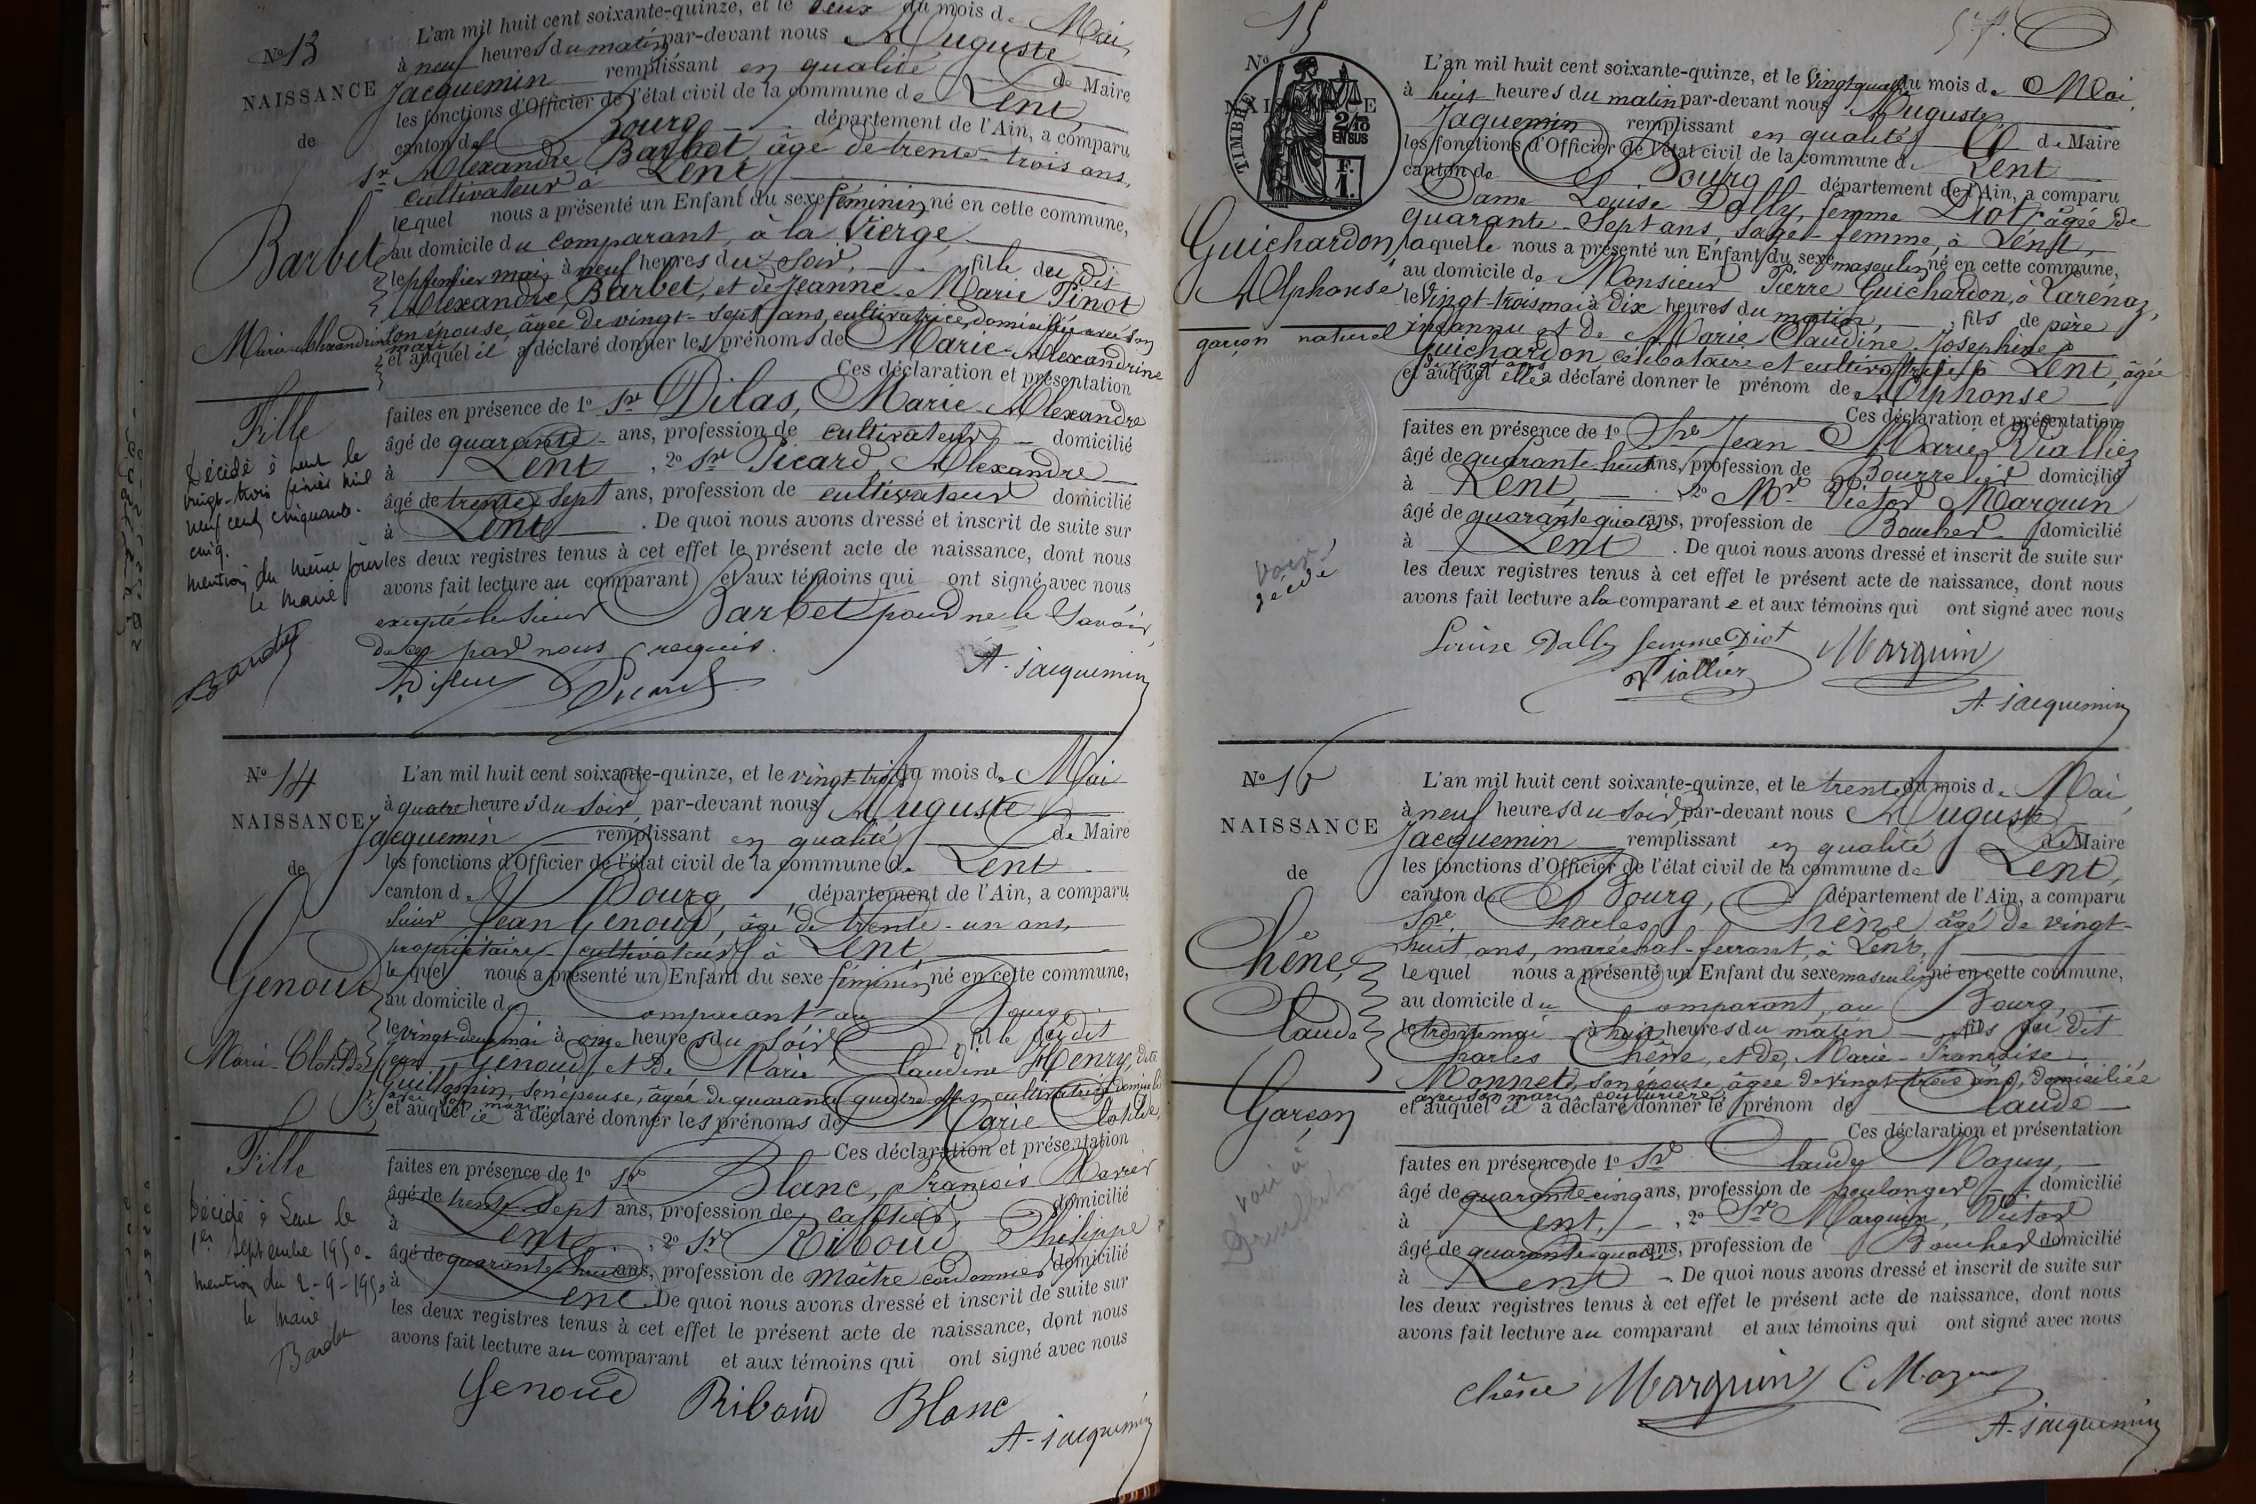 L'an mil huit cent soixante-quinze, et le deux du mois de Mai,
No 13
à neuf heures du matin par-devant nous Auguste
NAISSANCE
Jacquemin remplissant en qualité de Maire
les fonctions d'Officier de l'état civil de la commune de Lent
de
canton de Bourg département de l'Ain, a comparu
Sr Alexandre Barbet âgé de trente-trois ans,
cultivateur à Lent
lequel nous a présenté un Enfant du sexe féminin né en cette commune,
Barbet
au domicile du comparant, à la Vierge,
le premier mai, à neuf heures du soir, fille du dit
Alexandre Barbet, et de Jeanne-Marie Pinot
Marie-Alexandrine
son épouse, âgée de vingt-sept ans, cultivatrice, domiciliée avec son
mari
et auquel il a déclaré donner les prénoms de Marie-Alexandrine
Ces déclaration et présentation
Fille
faites en présence de 1o Sr Dilas, Marie-Alexandre
âgé de quarante ans, profession de cultivateur domicilié
à Lent, 2o Sr Picard, Alexandre
âgé de trente sept ans, profession de cultivateur domicilié
à Lent. De quoi nous avons dressé et inscrit de suite sur
les deux registres tenus à cet effet le présent acte de naissance, dont nous
avons fait lecture au comparant et aux témoins qui ont signé avec nous
excepté le sieur Barbet pour ne le savoir,
de ce par nous requis.
Décédé à Lent le
vingt-trois février mil
neuf cent cinquante-
cinq.
mention du même jour
le maire
Picard
A. jacquemin
No 14
NAISSANCE
de
L'an mil huit cent soixante-quinze, et le vingt-trois du mois de Mai
à quatre heures du soir, par-devant nous Auguste
Jacquemin remplissant en qualité de Maire
les fonctions d'Officier de l'état civil de la commune de Lent
canton de Bourg, département de l'Ain, a comparu
Sieur Jean Genoud, âgé de trente-un ans,
propriétaire-cultivateur à Lent
lequel nous a présenté un Enfant du sexe féminin né en cette commune,
Genoud
au domicile du Comparant au Bourg
le vingt-deux mai à onze heures du soir, fille du dit
Marie-Clotilde
Jean Genoud et de Marie Claudine Henry, dite
Guillomin, son épouse, âgée de quarante quatre ans cultivatrice domiciliée
avec son mari
et auquel il a déclaré donner les prénoms de Marie Clotilde,
Ces déclaration et présentation
Fille
faites en présence de 1o Sr Blanc, François Xavier
âgé de trente sept ans, profession de cafetier, domicilié
à Lent, 2o Sr Riboud Philippe
âgé de quarante huit ans, profession de Maître cordonnier domicilié
à Lent. De quoi nous avons dressé et inscrit de suite sur
les deux registres tenus à cet effet le présent acte de naissance, dont nous
avons fait lecture au comparant et aux témoins qui ont signé avec nous
Décédé à Lent le
1er Septembre 1950.
mention du 2-9-1950
le maire
Genoud Riboud Blanc
A. jacquemin
15
No
NAISSANCE
TIMBRE
2/10
EN SUS
F.
1.
L'an mil huit cent soixante-quinze, et le vingt quatre du mois de Mai,
à huit heures du matin par-devant nous Auguste,
Jaquemin remplissant en qualité de Maire
les fonctions d'Officier de l'état civil de la commune de Lent
canton de Bourg département de l'Ain, a comparu
Dame Louise Dally, femme Diot, âgée de
quarante-Sept ans, sage-femme, à Lent,
Guichardon,
laquelle nous a présenté un Enfant du sexe masculin né en cette commune,
au domicile de Monsieur Pierre Guichardon, à Larénaz,
Alphonse
le Vingt-trois mai à Dix heures du matin, fils de père
garçon naturel
inconnu et de Marie Claudine Josephine
Guichardon célibataire et cultivatrice à Lent, âgée
et auquel elle a déclaré donner le prénom de Alphonse
Ces déclaration et présentation
faites en présence de 1o Sr Jean-Marie Viallier
âgé de quarante-huit ans, profession de Bourrelier domicilié
à Lent, 2o Mr Victor Marguin
âgé de quarante quatre ans, profession de Boucher domicilié
à Lent. De quoi nous avons dressé et inscrit de suite sur
les deux registres tenus à cet effet le présent acte de naissance, dont nous
avons fait lecture a la comparante et aux témoins qui ont signé avec nous
voir
décédé
Louise Dally femme Diot Marguin
Viallier
A. jacquemin
No 16
NAISSANCE
de
L'an mil huit cent soixante-quinze, et le trente du mois de Mai,
à neuf heures du soir par-devant nous Auguste
Jacquemin remplissant en qualité de Maire
les fonctions d'Officier de l'état civil de la commune de Lent,
canton de Bourg, département de l'Ain, a comparu
Sr Charles Chêne âgé de vingt-
huit ans, maréchal-ferrant, à Lent,
Chêne,
lequel nous a présenté un Enfant du sexe masculin né en cette commune,
au domicile du Comparant, au Bourg,
Claude
le trente mai à huit heures du matin fils du dit
Charles Chêne, et de, Marie-Françoise
Monnet, son épouse, âgée de vingt-trois ans, domiciliée
avec son mari, couturière
Garçon
et auquel il a déclaré donner le prénom de Claude
Ces déclaration et présentation
faites en présence de 1o Sr Claude Mazuy,
âgé de quarante cinq ans, profession de boulanger domicilié
à Lent, 2o Sr Marguin, Victor
âgé de quarante-quatre ans, profession de Boucher domicilié
à Lent. De quoi nous avons dressé et inscrit de suite sur
les deux registres tenus à cet effet le présent acte de naissance, dont nous
avons fait lecture au comparant et aux témoins qui ont signé avec nous
voir à
chêne Marguin C Mazuy
A. jacquemin